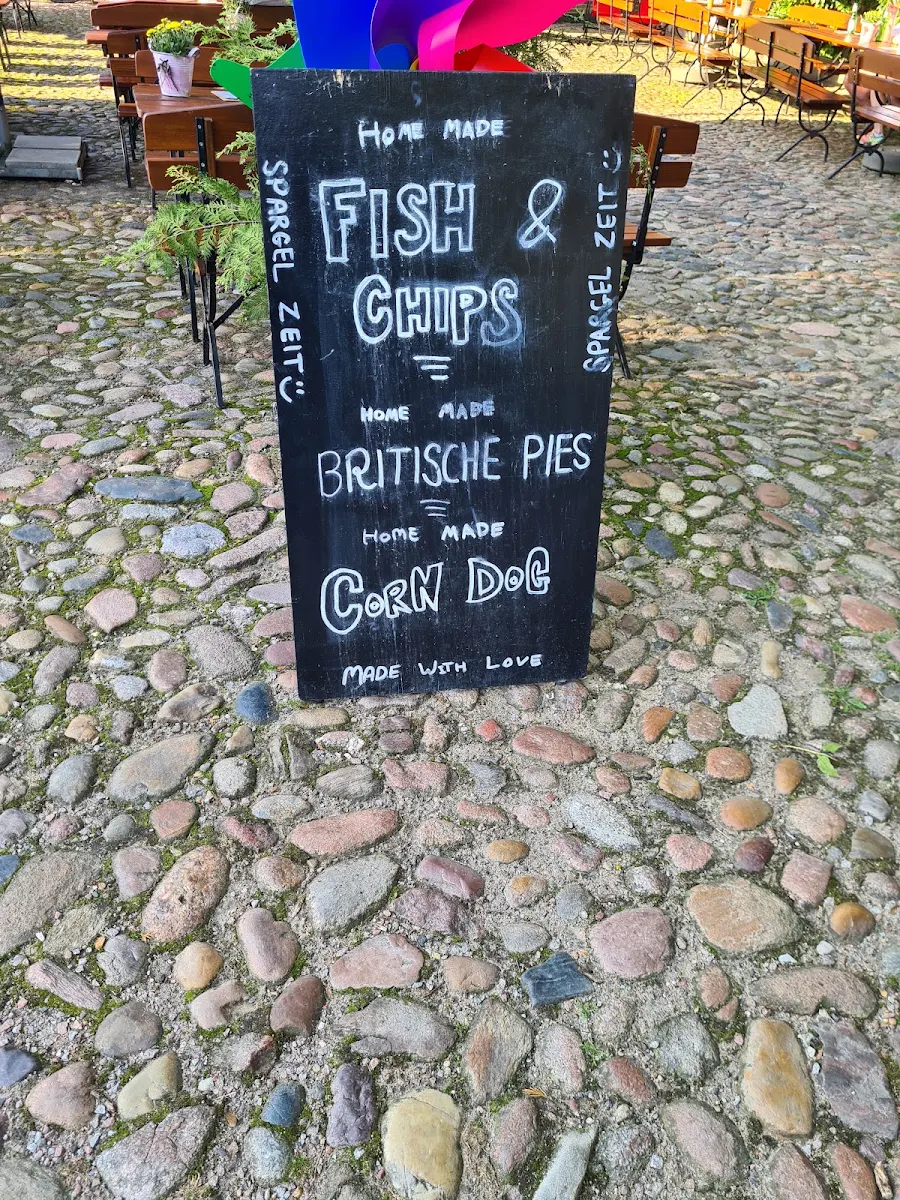 HOME MADE
FISH &
CHIPS
HOME MADE
BRITISCHE PIES
HOME MADE
CORN DOG
MADE WITH LOVE
SPARGEL ZEIT
SPARGEL ZEIT